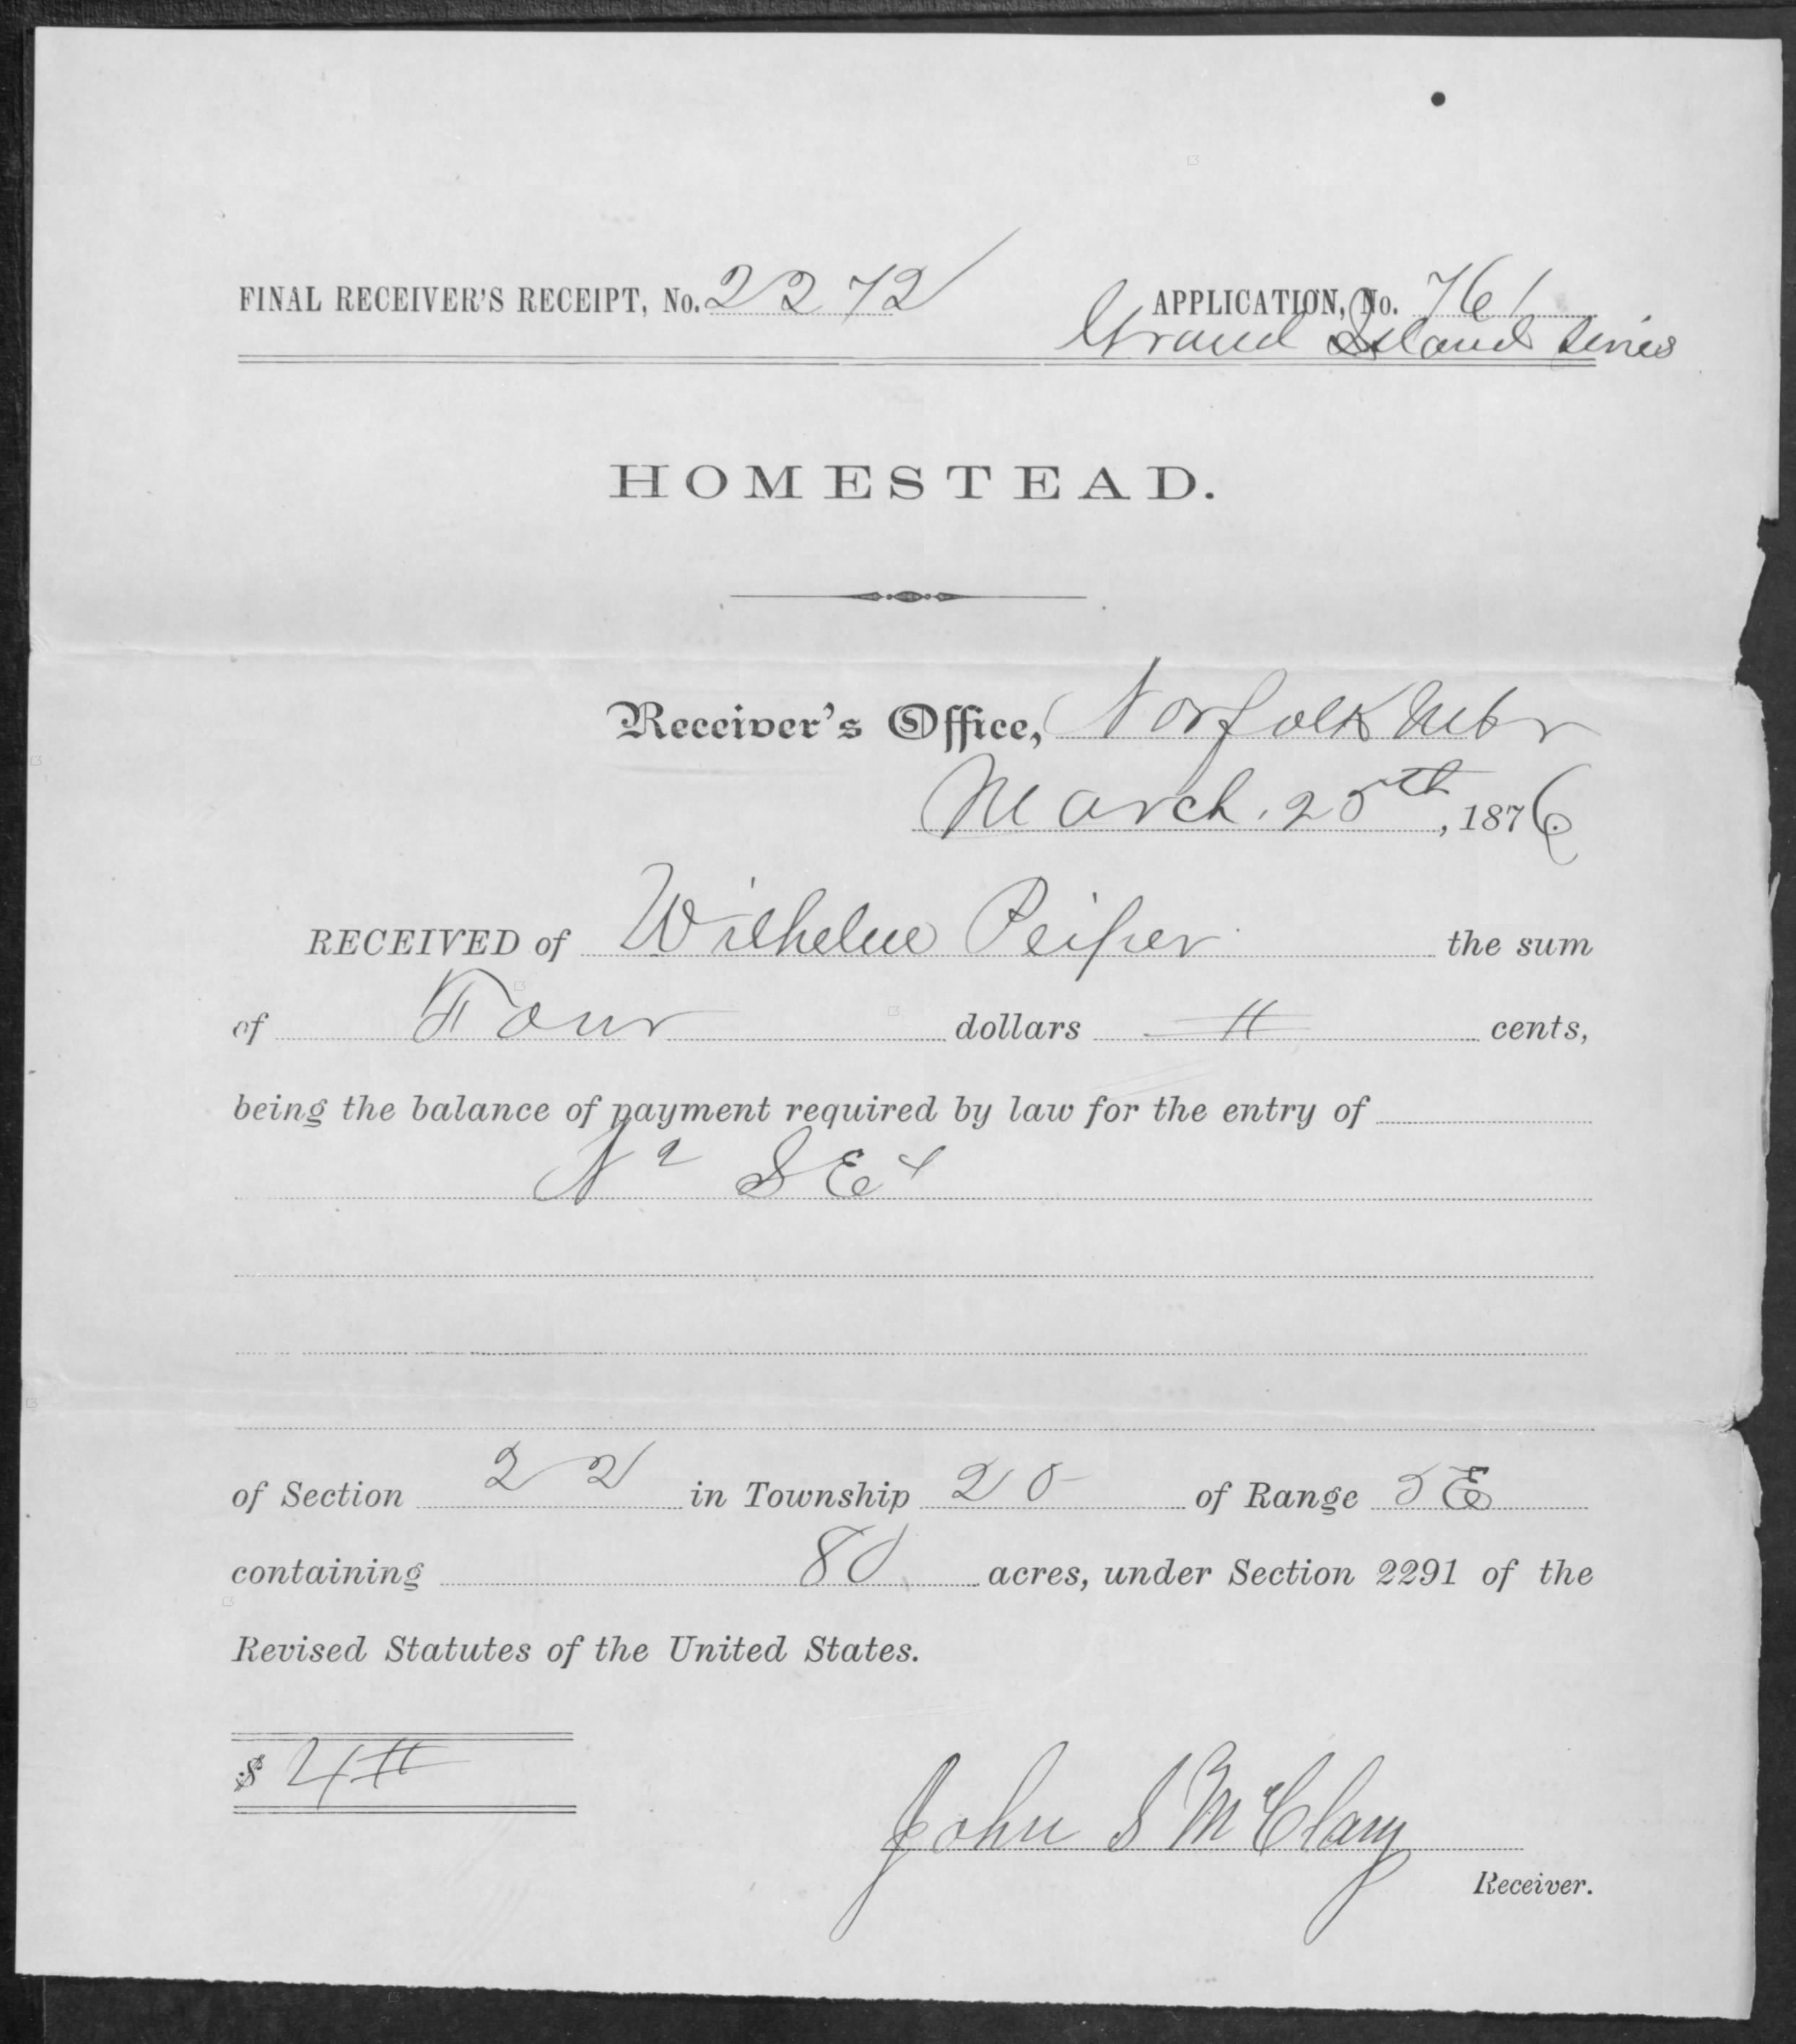 FINAL RECEIVER'S RECEIPT, No. 2272 APPLICATION, No. 761
Grand Island Series
HOMESTEAD.
Receiver's Office, Norfolk Nebr
March. 25th, 1876.
RECEIVED of Wilhelm Peiper the sum
of Four dollars cents,
being the balance of payment required by law for the entry of
N2 SE4
of Section 22 in Township 20 of Range 5E
containing 80 acres, under Section 2291 of the
Revised Statutes of the United States.
$ 4
John S McClary
Receiver.